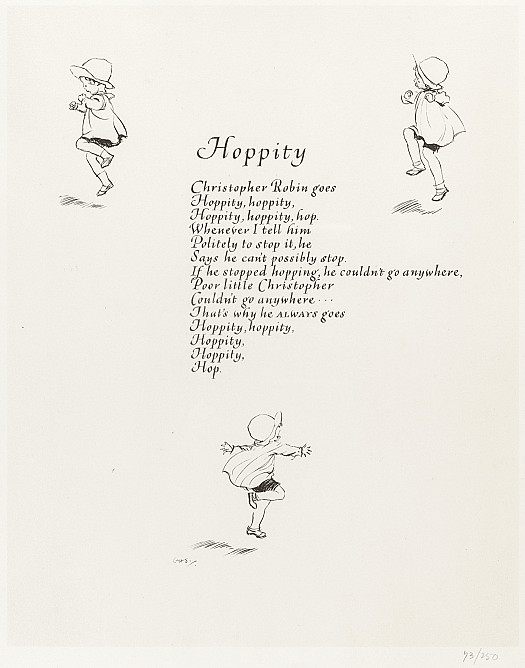 Hoppity
Christopher Robin goes
Hoppity, hoppity,
Hoppity, hoppity, hop.
Whenever I tell him
Politely to stop it, he
Says he can't possibly stop.
If he stopped hopping, he couldn't go anywhere,
Poor little Christopher
Couldn't go anywhere ...
That's why he ALWAYS goes
Hoppity, hoppity,
Hoppity,
Hoppity,
Hop.
73/250